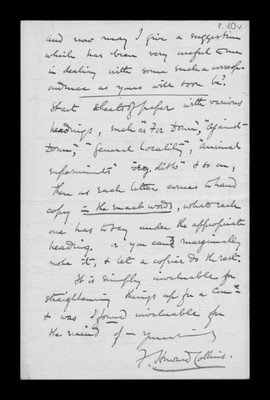 P. 10v
and now may I give a suggestion
which has been very useful to me
in dealing with some such a corresp-
ondence as yours will soon be?
Start sheets of paper with various
headings, such "For Down", "Against
Down", "General Locality", "Animal
experiments" "Veg. ditto" & so on,
then as each letter comes to hand
copy in the exact words, what each
one has to say under the appropriate
heading. or you can marginally
note it, & let a copier do the rest.
It is simply invaluable for
straightening things up for a Com
& was I found invaluable for
the mind of —
F. Howard Collins.